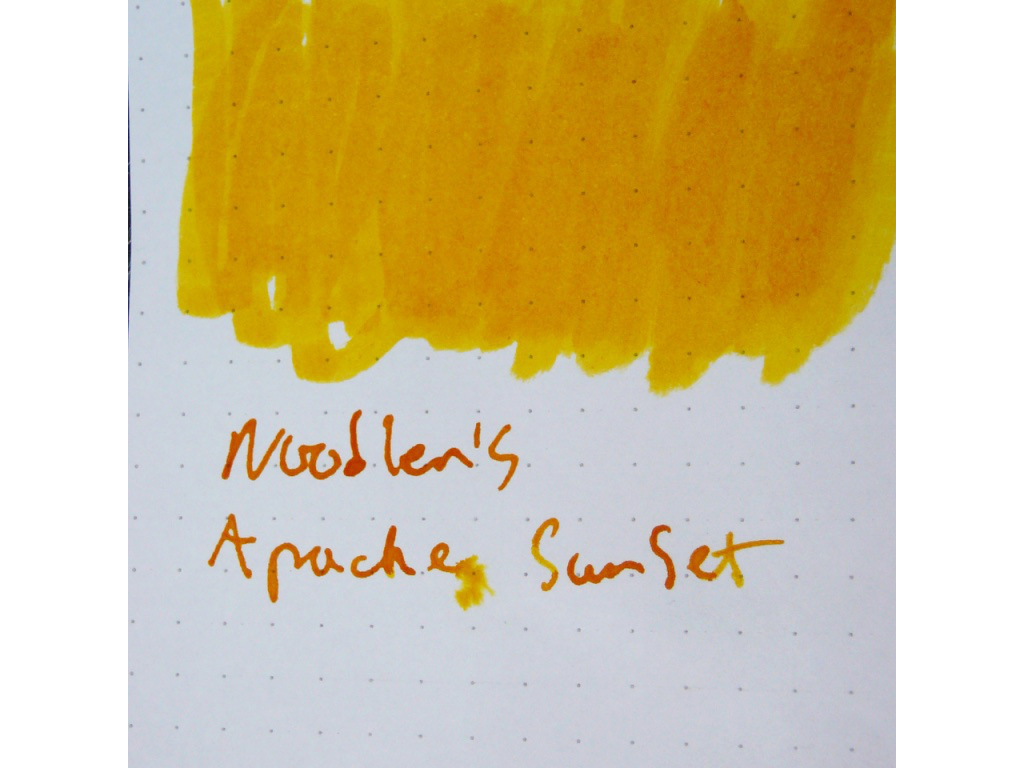 Noodler's
Apache Sunset